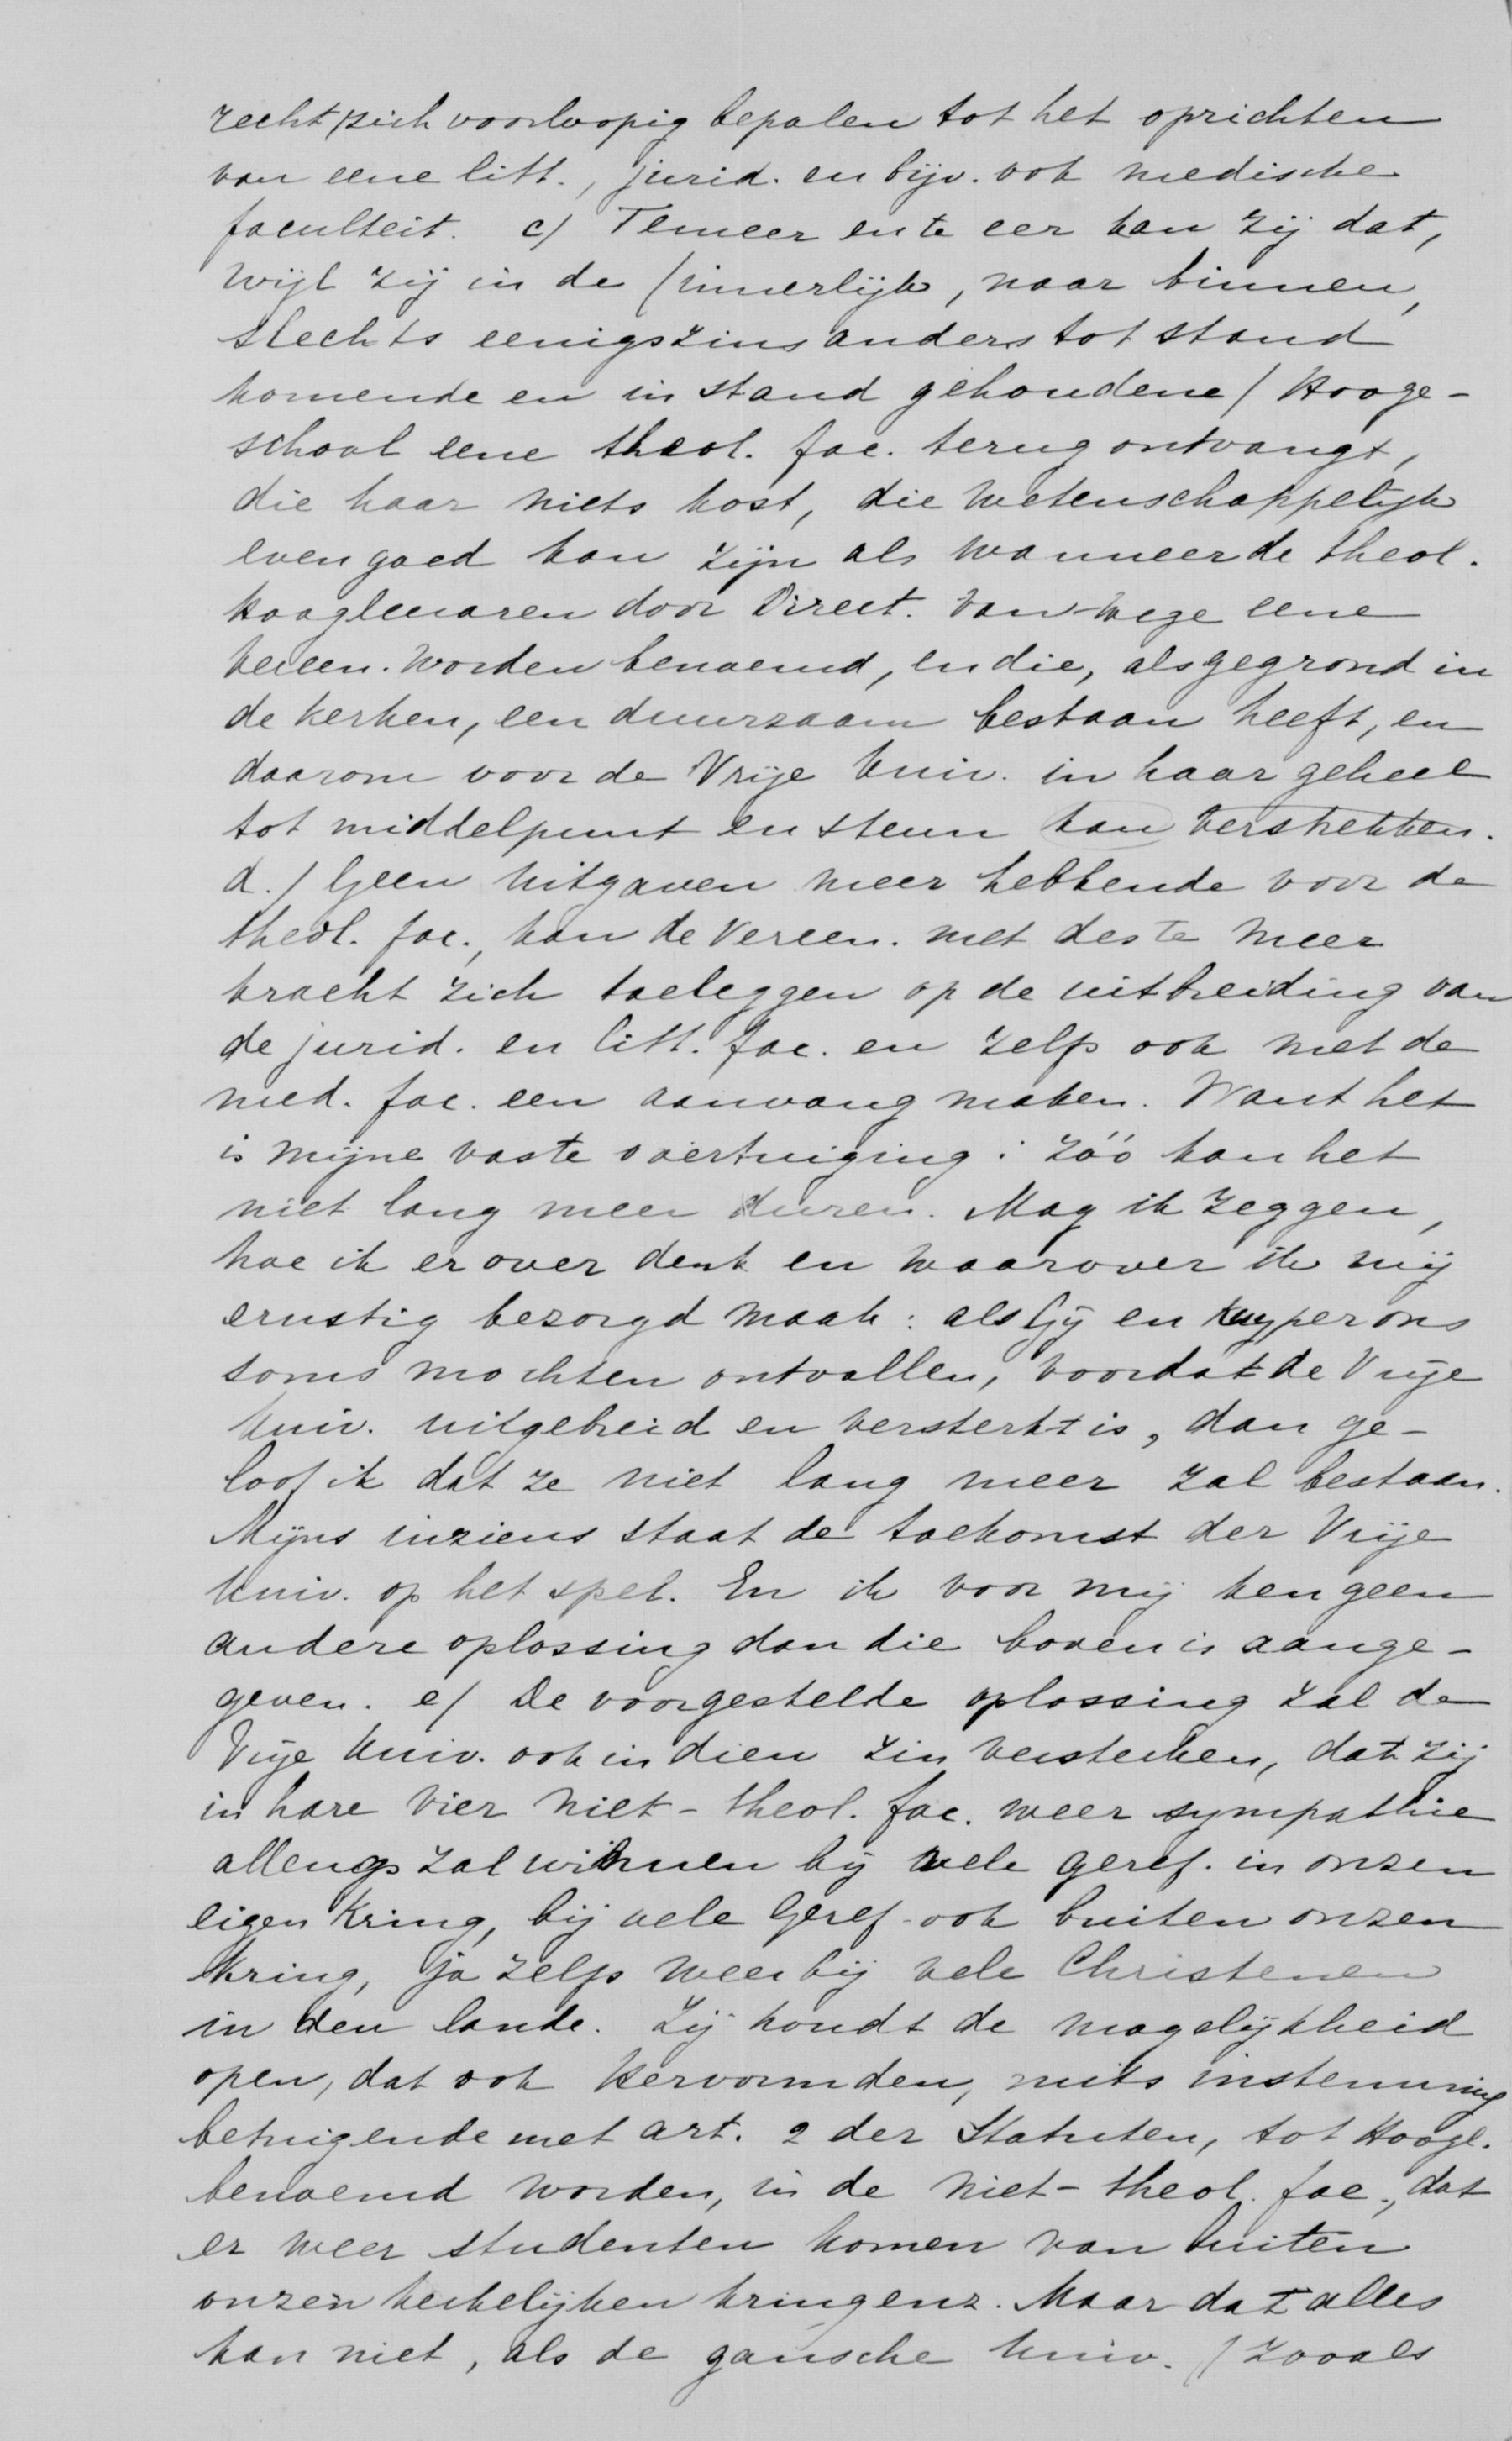 recht) zich voorloopig bepalen tot het oprichten
van eene litt., jurid. en bijv. ook medische
faculteit. c) Temeer en te eer kan zij dat,
wijl zij in de (innerlijk, naar binnen,
slechts eenigszins anders tot stand
komende en in stand gehoudene) Hooge-
school eene theol. fac. terug ontvangt,
die haar niets kost, die wetenschappelijk
even goed kan zijn als wanneer de theol.
hoogleeraren door Direct. van-wege eene
vereen. worden benoemd, en die, als gegrond in
de kerken, een duurzaam bestaan heeft, en
daarom voor de Vrije Univ. in haar geheel
tot middelpunt en steun kan verstrekken.
d.) Geen uitgaven meer hebbende voor de
theol. fac., kan de Vereen. met des te meer
kracht zich toeleggen op de uitbreiding van
de jurid. en litt. fac. en zelfs ook met de
med. fac. een aanvang maken. Want het
is mijne vaste overtuiging: zóó kan het
niet lang meer duren. Mag ik zeggen,
hoe ik er over denk en waarover ik mij
ernstig bezorgd maak: als Gij en Kuyper ons
soms mochten ontvallen, voordat de Vrije
Univ. uitgebreid en versterkt is, dan ge-
loof ik dat ze niet lang meer zal bestaan.
Mijns inziens staat de toekomst der Vrije
Univ. op het spel. En ik voor mij ken geen
andere oplossing dan die boven is aange-
geven. e) De voorgestelde oplossing zal de
Vrije Univ. ook in dien zin versterken, dat zij
in hare vier niet-theol. fac. weer sympathie
allengs zal winnen bij vele geref. in onzen
eigen kring, bij vele Geref. ook buiten onzen
kring, ja zelfs weer bij vele Christenen
in den lande. Zij houdt de mogelijkheid
open, dat ook Hervormden, mits instemming
betuigende met art. 2 der Statuten, tot Hoogl.
benoemd worden, in de niet-theol. fac., dat
er weer studenten komen van buiten
onzen kerkelijken kring enz. Maar dat alles
kan niet, als de gansche Univ. (zooals